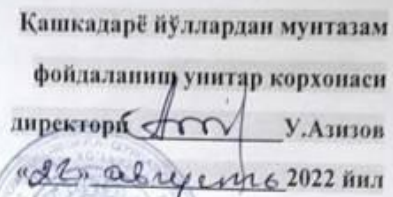 Қашкадарё йўллардан мунтазам
фойдаланиш унитар корхонаси
директори У.Азизов
«22» августь 2022 йил